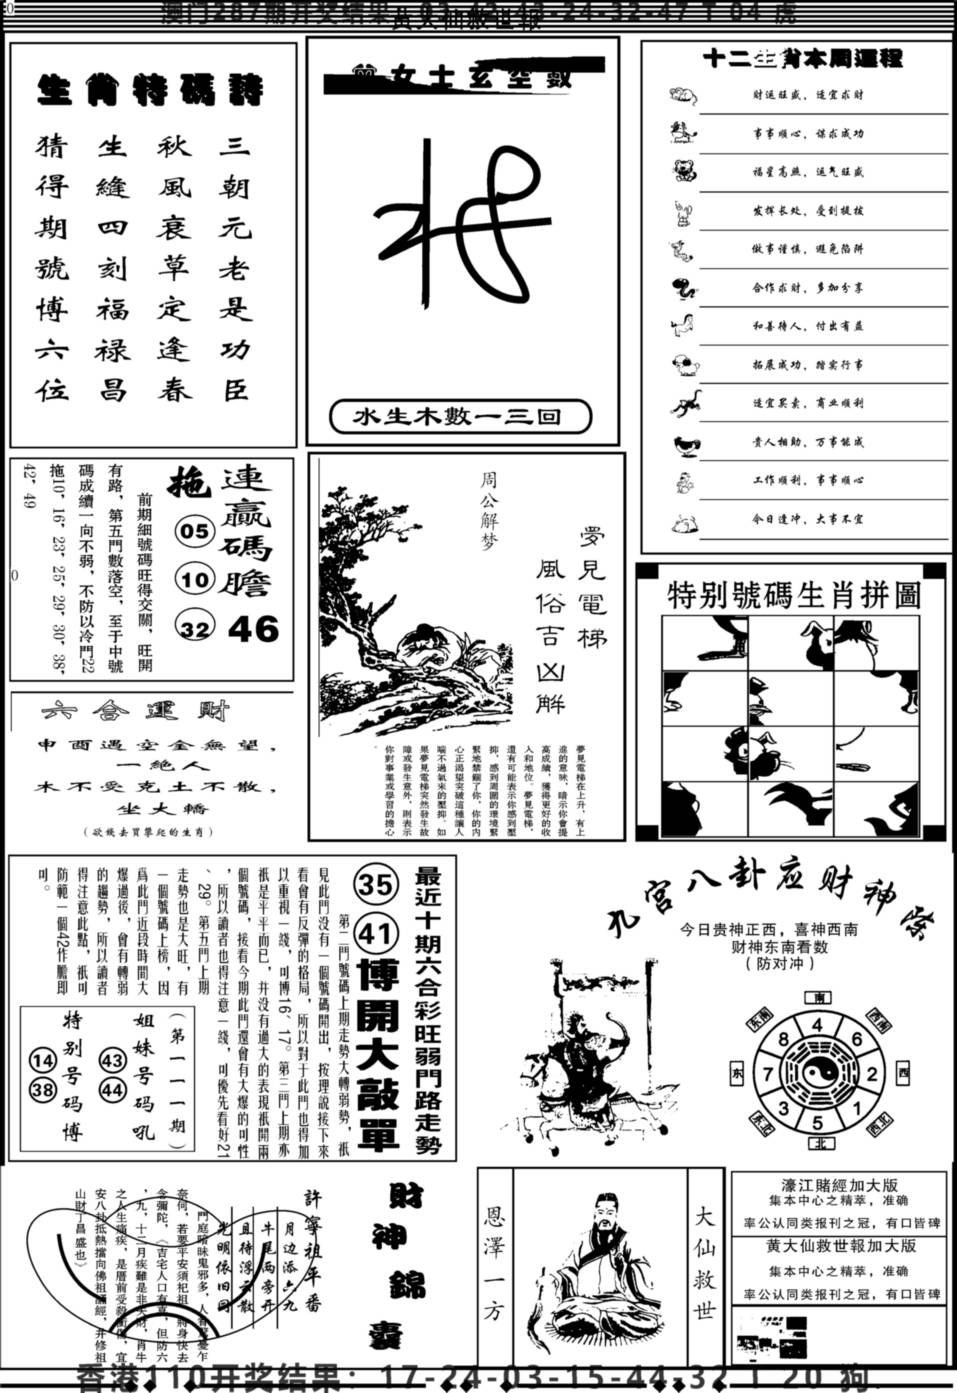 生肖特碼詩
三朝元老是功臣
秋風衰草定逢春
生縫四刻福禄昌
猜得期號博六位
曾女士玄空數
水生木數一三回
十二生肖本周運程
财运旺盛，适宜求财
事事顺心，谋求成功
福星高照，运气旺盛
发挥长处，受到提拔
做事谨慎，避免陷阱
合作求财，多加分享
和善待人，付出有益
拓展成功，踏实行事
适宜买卖，商业顺利
贵人相助，万事能成
工作顺利，事事顺心
今日逢冲，大事不宜
連贏碼膽 46
拖 05 10 32
前期細號碼旺得交關，旺開
有路，第五門數落空，至于中號
碼成績一向不弱，不防以冷門22
拖10，16，23，25，29，30，38，
42，49
六合運財
申酉遇空金無望，
一絶人
木不受克土不散，
坐大轎
周公解梦
夢見電梯
風俗吉凶解
夢見電梯在上升，有上
進的意味，暗示你會提
高成績，獲得更好的收
入和地位。夢見電梯，
還有可能表示你感到壓
抑，感到周圍的環境緊
緊地禁錮了你，你的内
心正渴望突破這種讓人
喘不過氣來的壓抑。如
果夢見電梯突然發生故
障或發生意外，則表示
你對事業或學習的擔心
特别號碼生肖拼圖
最近十期六合彩旺弱門路走勢
35 41 博開大敲單
第二門號碼上期走勢大轉弱勢，祇
見此門没有一個號碼開出，按理說接下來
看會有反彈的格局，所以對于此門也得加
以重視一綫，可博16、17。第三門上期亦
祇是平平而已，并没有過大的表現祇開兩
個號碼，接看今期此門還會有大爆的可性
，所以讀者也得注意一綫，可優先看好21
、29。第五門上期
走勢也是大旺，有
一個號碼上榜，因
爲此門近段時間大
爆過後，會有轉弱
的趨勢，所以讀者
得注意此點，祇可
防範一個42作膽即
可。
（第一一一期）
姐妹号码吼
43 44
特别号码博
14 38
九宫八卦应财神除
今日贵神正西，喜神西南
财神东南看数
（防对冲）
南
东南 西南
4
8 6
东 7 2 西
3 1
5
东北 西北
北
財神錦囊
許寧祖平番
月边添六九
牛尾两旁开
且待浮云散
光明依旧回
大仙救世
恩澤一方
濠江賭經加大版
集本中心之精萃，准确
率公认同类报刊之冠，有口皆碑
黄大仙救世報加大版
集本中心之精萃，准确
率公认同类报刊之冠，有口皆碑
香港110开奖结果：17-24-03-15-44-32 T 20 狗